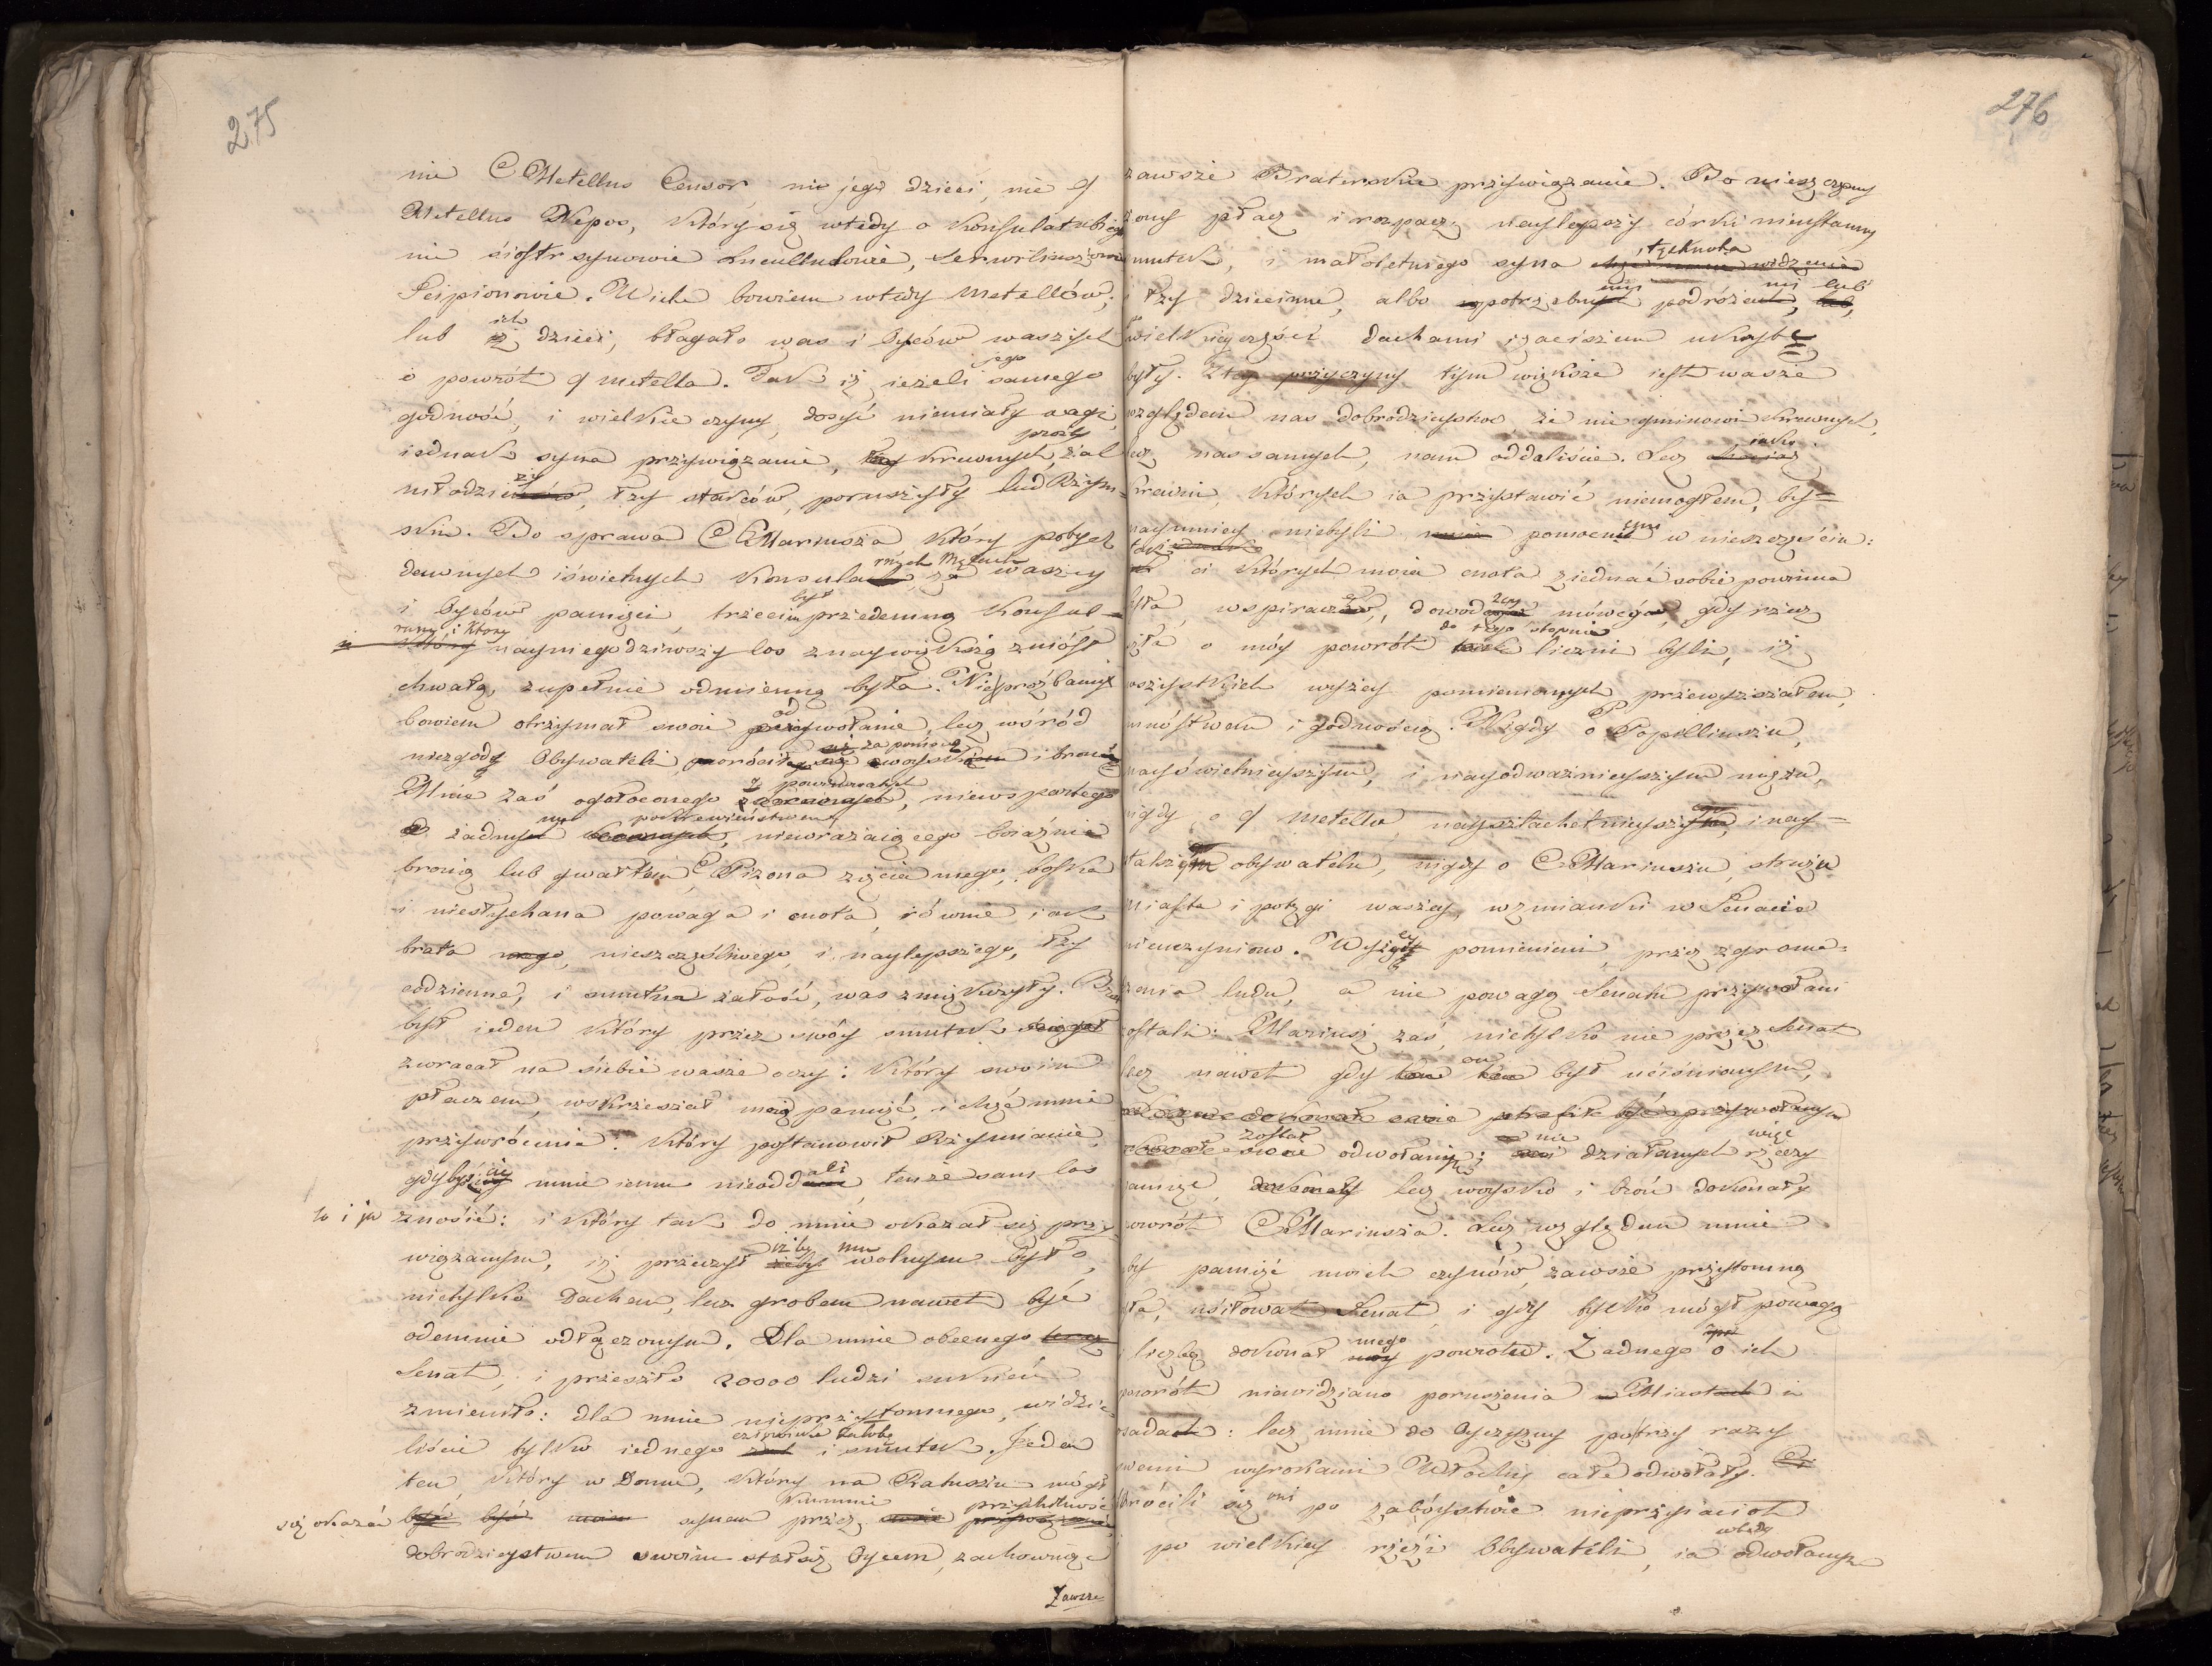 275
nie C Metellus Censor, nie jego dzieci, nie Q
Metellus Nepos, który się wtedy o Konsulat ubiegał
nie siostr synowie Lucullusowie, Serwiliusz
Scipionowie. Wiele bowiem wtedy Metellów,
lub ich dzieci, błagało was i Oyców waszych
o powrót Q Metella. Tak iż ieżeli jego samego
godność, i wielkie czyny, dosyć niemiały wagi,
iednak syna przywiązanie, prozby krewnych, żal
młodzieży, łzy starców, poruszyły lud Rzym=
ski. Bo sprawa C Mariusza który po tych
dawnych i świetnych Konsularnych Mężach, za waszey
i Oyców pamięci, trzecim był przedemną Konsul=
i który nayniegodziwszy los z naywiększą zniósł
chwałą, zupełnie odmienną była. Nie prozbamy
bowiem otrzymał swoie odwołanie, lecz wśród
niezgody Obywateli wrócił się za pomocą woyska i broni
Mnie zaś ogołoconego z powinowatych, niewspartego
żadnym pokrewieństwem, niewrażaiącego boiaźnie
bronią lub gwałtem, C Pizona zięcia mego, boska
i niesłychana powaga i cnota, równie iak
brata mego, nieszczęśliwego, i naylepszego, łzy
codzienne, i smutna żałość, was zmiękczyły. Brat
był ieden który przez swóy smutek
zwracał na siebie wasze oczy: który swoim
płaczem, wskrzeszał moią pamięć, i chęć mnie
przywrócenia: który postanowił Rzymianie,
gdybyście mnie iemu nieoddali, tenże sam los
znosić: i który tak do mnie okazał się przy=
wiązanym, iż przeczył iżby mu wolnym było,
nietylko Dachem, lecz grobem nawet być
odemnie odłączonym. Dla mnie obecnego teraz
Senat, i przeszło 20000 ludzi suknie
zmieniło: dla mnie nieprzytomnego, widzie=
liście tylko iednego żałobę i smutek. Jeden
ten, który w Domu, który na Ratuszu mógł
się okazać synem przez ku mnie przychilność
dobrodzieystwem swoim stał się Oycem, zachowuiąc
Zawsze
276
zawsze Braterskie przywiązanie. Bo nieszczęsny
żony płacz i rozpacz, naylepszy córki nieustanny
smutek, i małoletniego syna tęsknota
i łzy dziecinne, albo potrzebnymi podróżami, lub
wielkiey części dachami i zaciszem ukryte
były. Z tey przyczyny tym większe iest wasze
względem nas dobrodzieystwo, że nie gminowi krewnych,
lecz nas samych, nam oddaliście. Lecz iako
krewni, których ia przystawić niemogłem, by=
naymniey niebyli pomocnymi w nieszczęściu:
tak ci których moia cnota ziednać sobie powinna
była, wspieracze, dowodzcy mówcy, gdy rzecz
szła o móy powrót do tego stopnia liczni byli, iż
wszystkich wyżey pomienionych przewyższałem,
mnóstwem i godnością. Nigdy o P Popilliuszu,
nayświetnieyszym, i nayodważnieyszym mężu,
nigdy, o Q Metellu, nayszlachetnieyszym, i nay=
stalszym obywatelu, nigdy o C Mariuszu, stróżu
miasta i potęgi waszey, wzmianki w Senacie
nieuczyniono. Wyżey pomienieni, przez zgroma=
dzenia ludu, a nie powagą Senatu przywołani
zostali: Mariusz zaś, nietylko nie przez Senat
lecz nawet gdy on był uciśnionym,
został odwołany; nie działanych więc rzeczy
pamięć, lecz woysko i broń dokonały
powrót C Mariusza. Lecz względem mnie
by pamięć moich czynów, zawsze przytomną
była, usiłował Senat, i gdy tylko mógł powagą
i liczbą dokonał mego powrotu. Żadnego o ich
powrót niewidziano poruszenia Miast i
osad: lecz mnie do Oyczyzny po trzy razy
swemi wyrokami Włochy całe odwołały.
Wrócili się oni po zabóystwie nieprzyiaciół
po wielkiey rzezi Obywateli, ia odwołanym